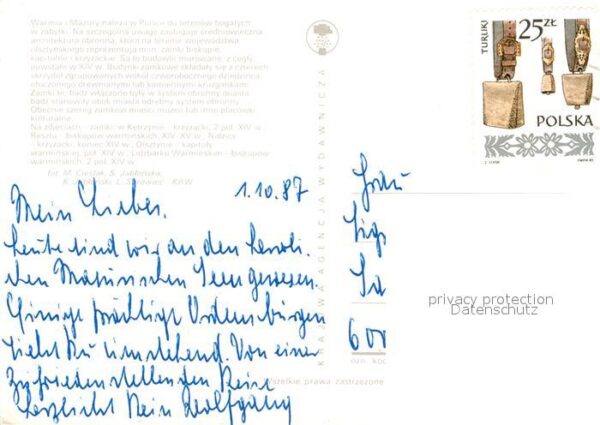 Warmia i Mazury należą w Polsce do terenów bogatych
w zabytki. Na szczególną uwagę zasługuje średniowieczna
architektura obronna, którą na terenie województwa
olsztyńskiego reprezentują m.in. zamki biskupie,
kapitulne i krzyżackie. Są to budowle murowane z cegły,
powstałe w XIV w. Budynki zamkowe składały się z czterech
skrzydeł zgrupowanych wokół czworobocznego dziedzińca,
otoczonego drewnianymi lub kamiennymi krużgankami.
Zamki te, bądź włączone były w system obronny miasta,
bądź stanowiły obok miasta odrębny system obronny.
Obecnie szereg zamków mieści muzea lub inne placówki
kulturalne.
Na zdjęciach: zamki w Kętrzynie - krzyżacki, 2 poł. XIV w.,
Reszlu - biskupów warmińskich, XIV-XV w., Nidzicy
- krzyżacki, koniec XIV w., Olsztynie - kapituły
warmińskiej, poł. XIV w., Lidzbarku Warmińskim - biskupów
warmińskich, 2 poł. XIV w.
fot. M. Cieślak, S. Jabłońska,
K. Jabłoński, L. Surowiec - KAW
KRAJOWA AGENCJA WYDAWNICZA
TURLIKI
25 ZŁ
POLSKA
1.10.87
Mein Lieber,
heute sind wir an den herrli-
chen Masurischen Seen gewesen.
Einige prächtige Ordensburgen
siehst Du umstehend. Von einer
zufriedenstellenden Reise
herzlichst Dein Wolfgang
Frau
600
privacy protection
Datenschutz
Wszelkie prawa zastrzeżone